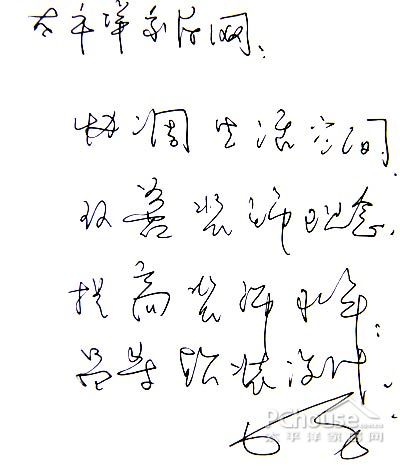 太平洋家居网:
协调生活空间.
改善装饰理念.
提高装饰水平.
品号软装设计.
PChouse
太平洋家居网